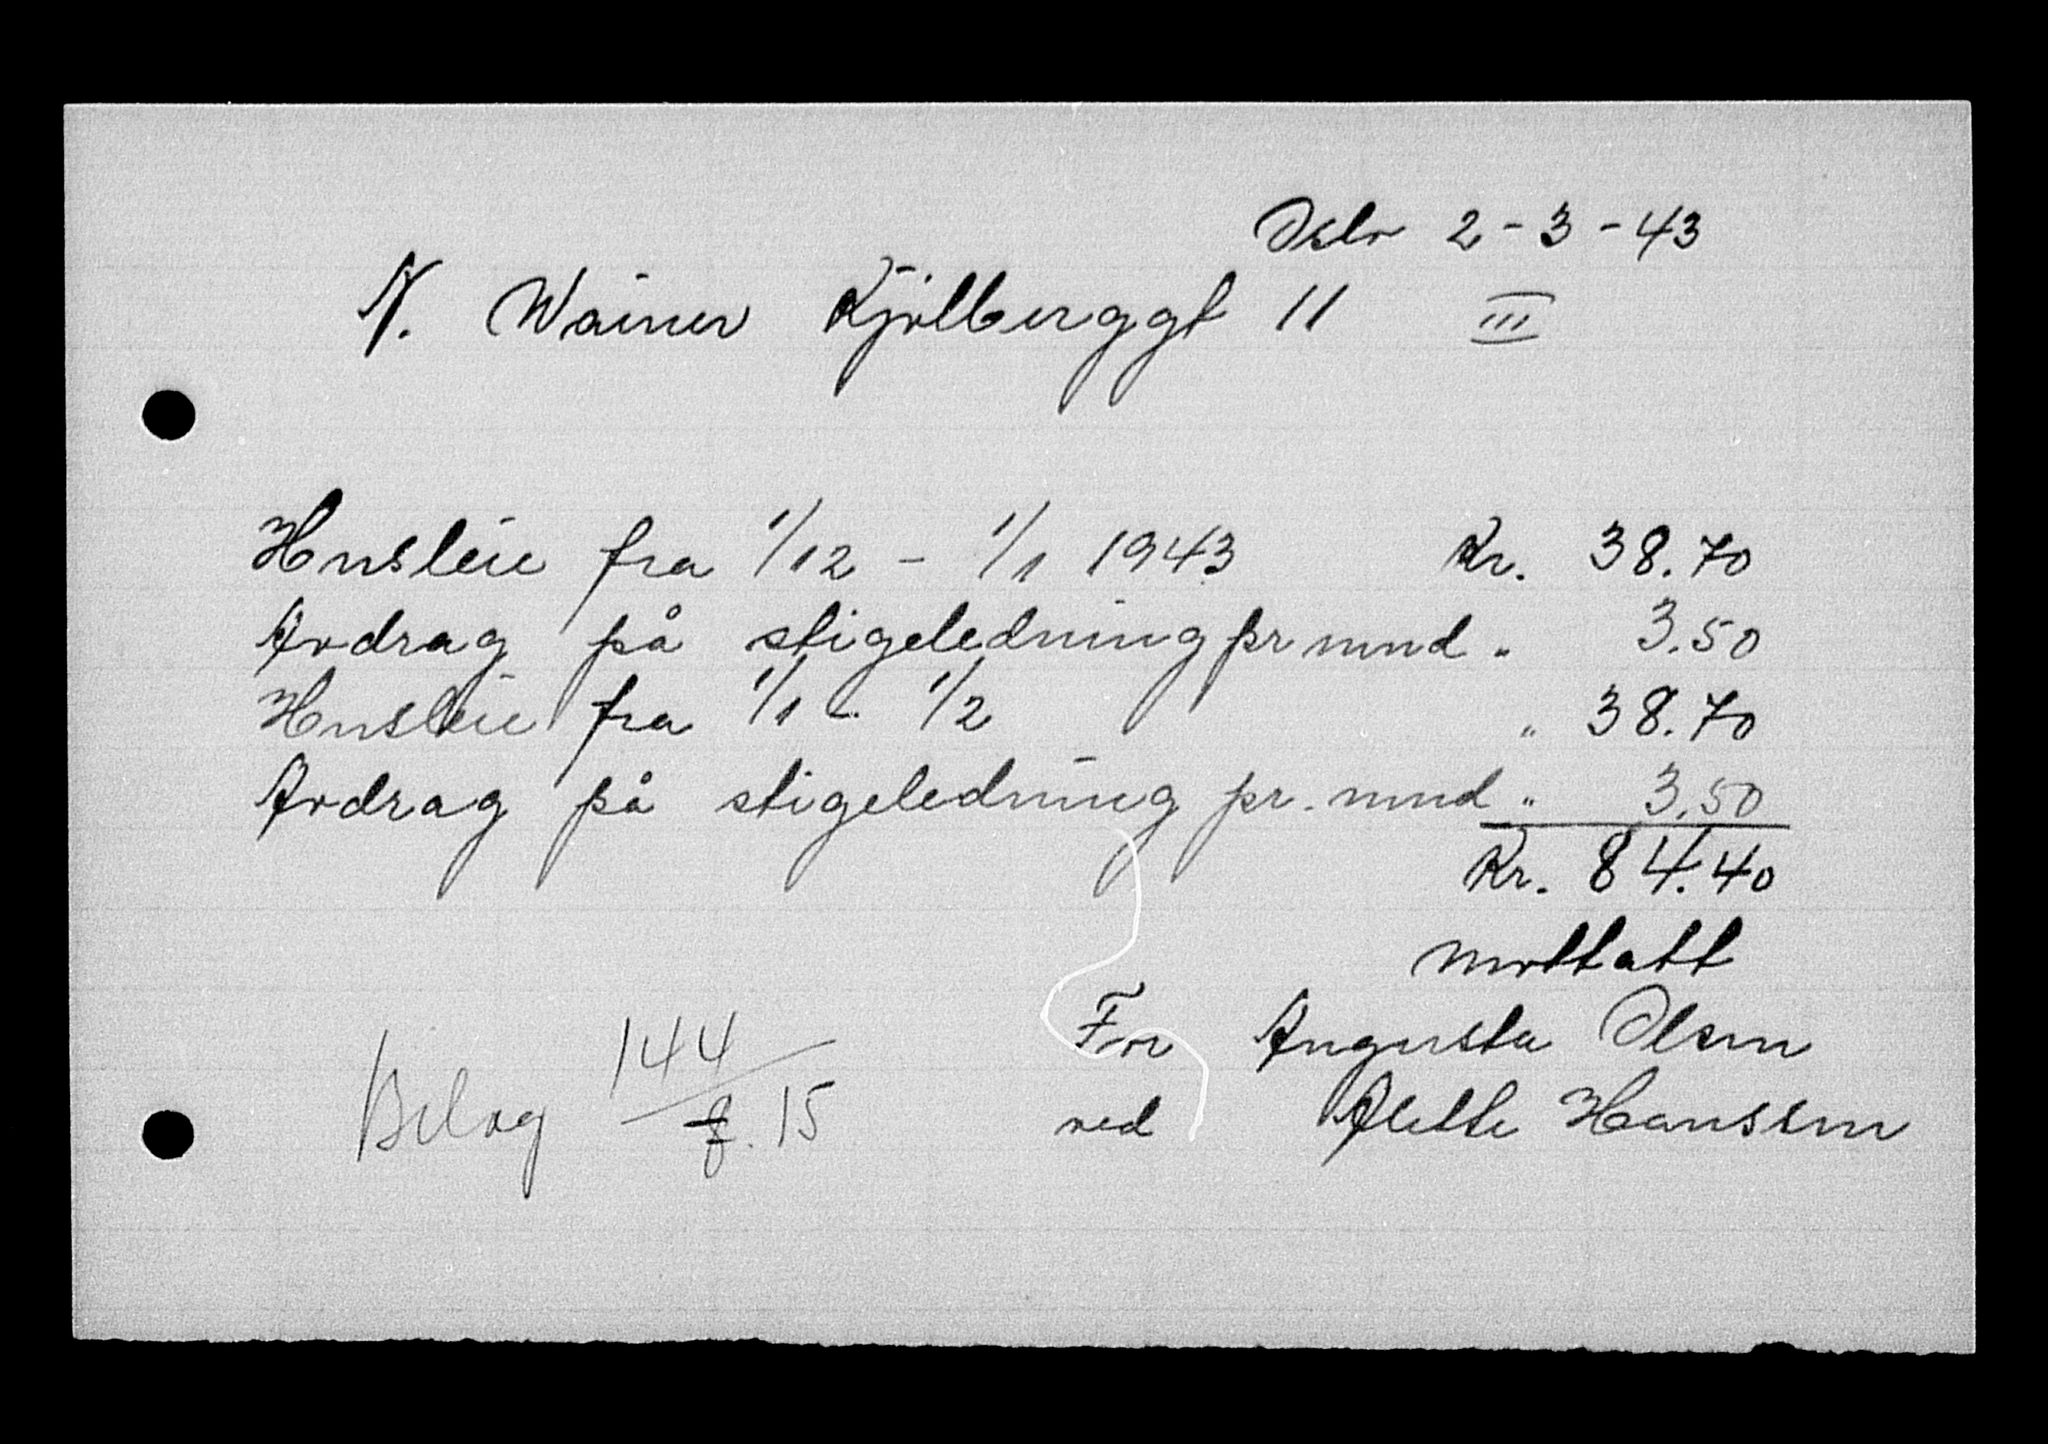 Oslo 2-3-43
N. Wainer Kjølberggt 11 III
Husleie fra 1/12 - 1/1 1943 Kr. 38.70
Avdrag på stigeledning pr mnd " 3.50
Husleie fra 1/1 - 1/2 " 38.70
Avdrag på stigeledning pr. mnd " 3.50
Kr. 84.40
mottatt
For Augusta Olsen
ved Alette Hanssen
Bilag 144
f. 15